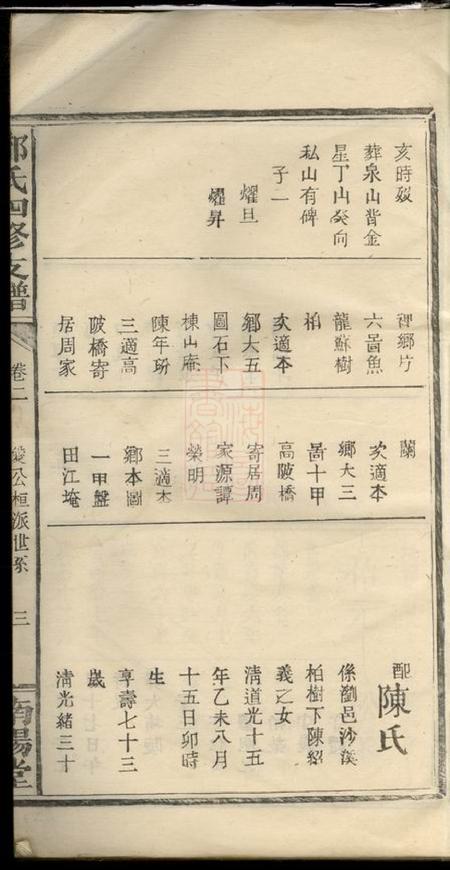 亥時歿
葬泉山背金
星丁山癸向
私山有碑
子一
燿旦
燿昇
裡鄉片
六啚魚
龍蘇樹
柏
次適本
鄉大五
圖石下
棟山庵
陳年玢
三適高
陂橋寄
居周家
蘭
次適本
鄉大三
啚十甲
高陂橋
寄居周
家源譚
榮明
三適本
鄉本圖
一甲盤
田江埯
配陳氏
係瀏邑沙溪
柏樹下陳紹
義之女
清道光十五
年乙未八月
十五日卯時
生
享壽七十三
歲
清光緒三十
氏四修支譜
卷二
公桓派世系
三
南陽堂